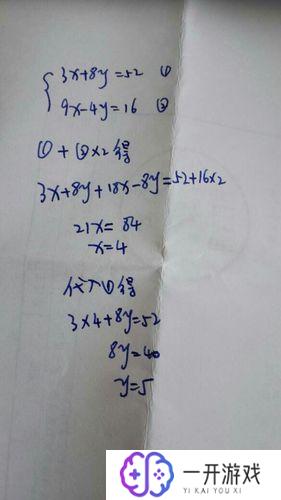 3x+8y=52 ①
9x-4y=16 ②
①+②×2得
3x+8y+18x-8y=52+16×2
21x=84
x=4
代入①得
3×4+8y=52
8y=40
y=5
一开游戏
YI KAI YOU XI